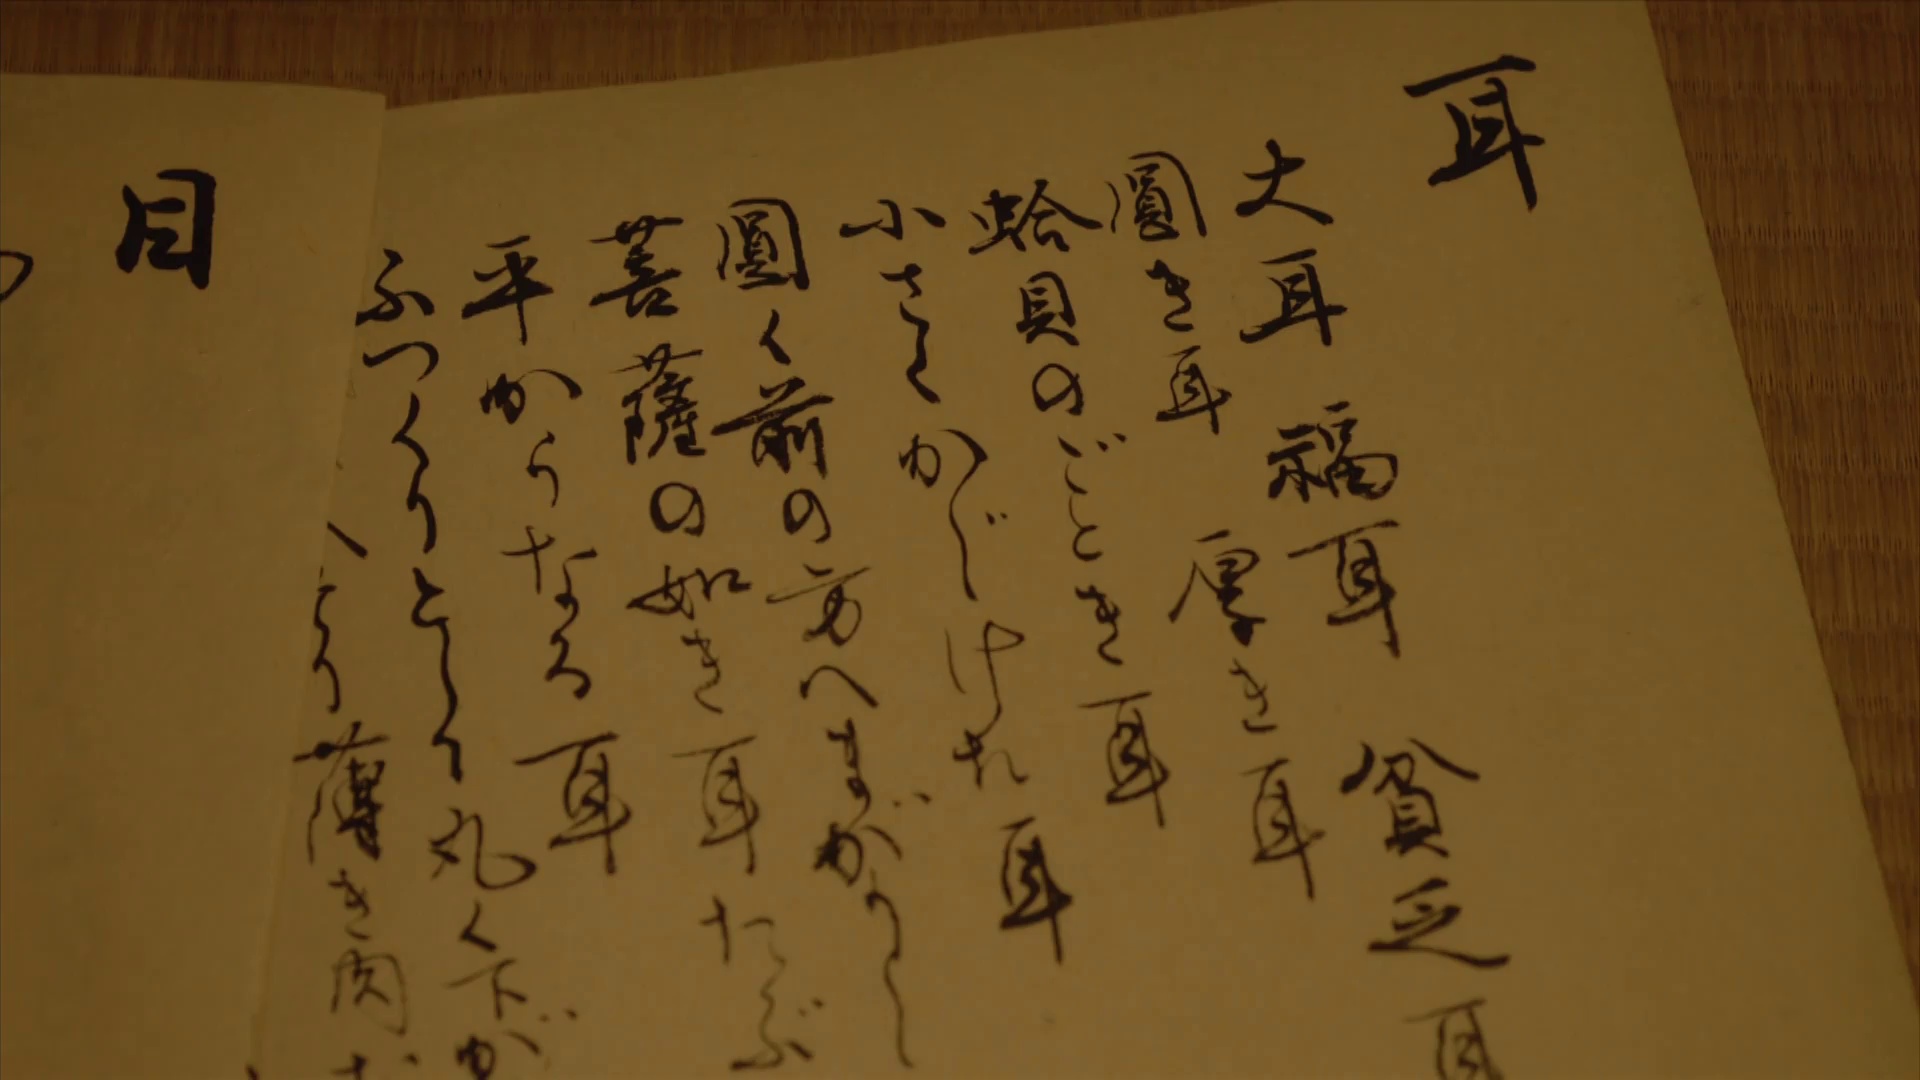 耳
大耳 福耳 貧乏耳
圓き耳 厚き耳
蛤貝のごとき耳
小さくかじけた耳
圓く前の方へまがりし
菩薩の如き耳たぶ
平からなる耳
ふつくりとして丸く下が
薄き肉
目